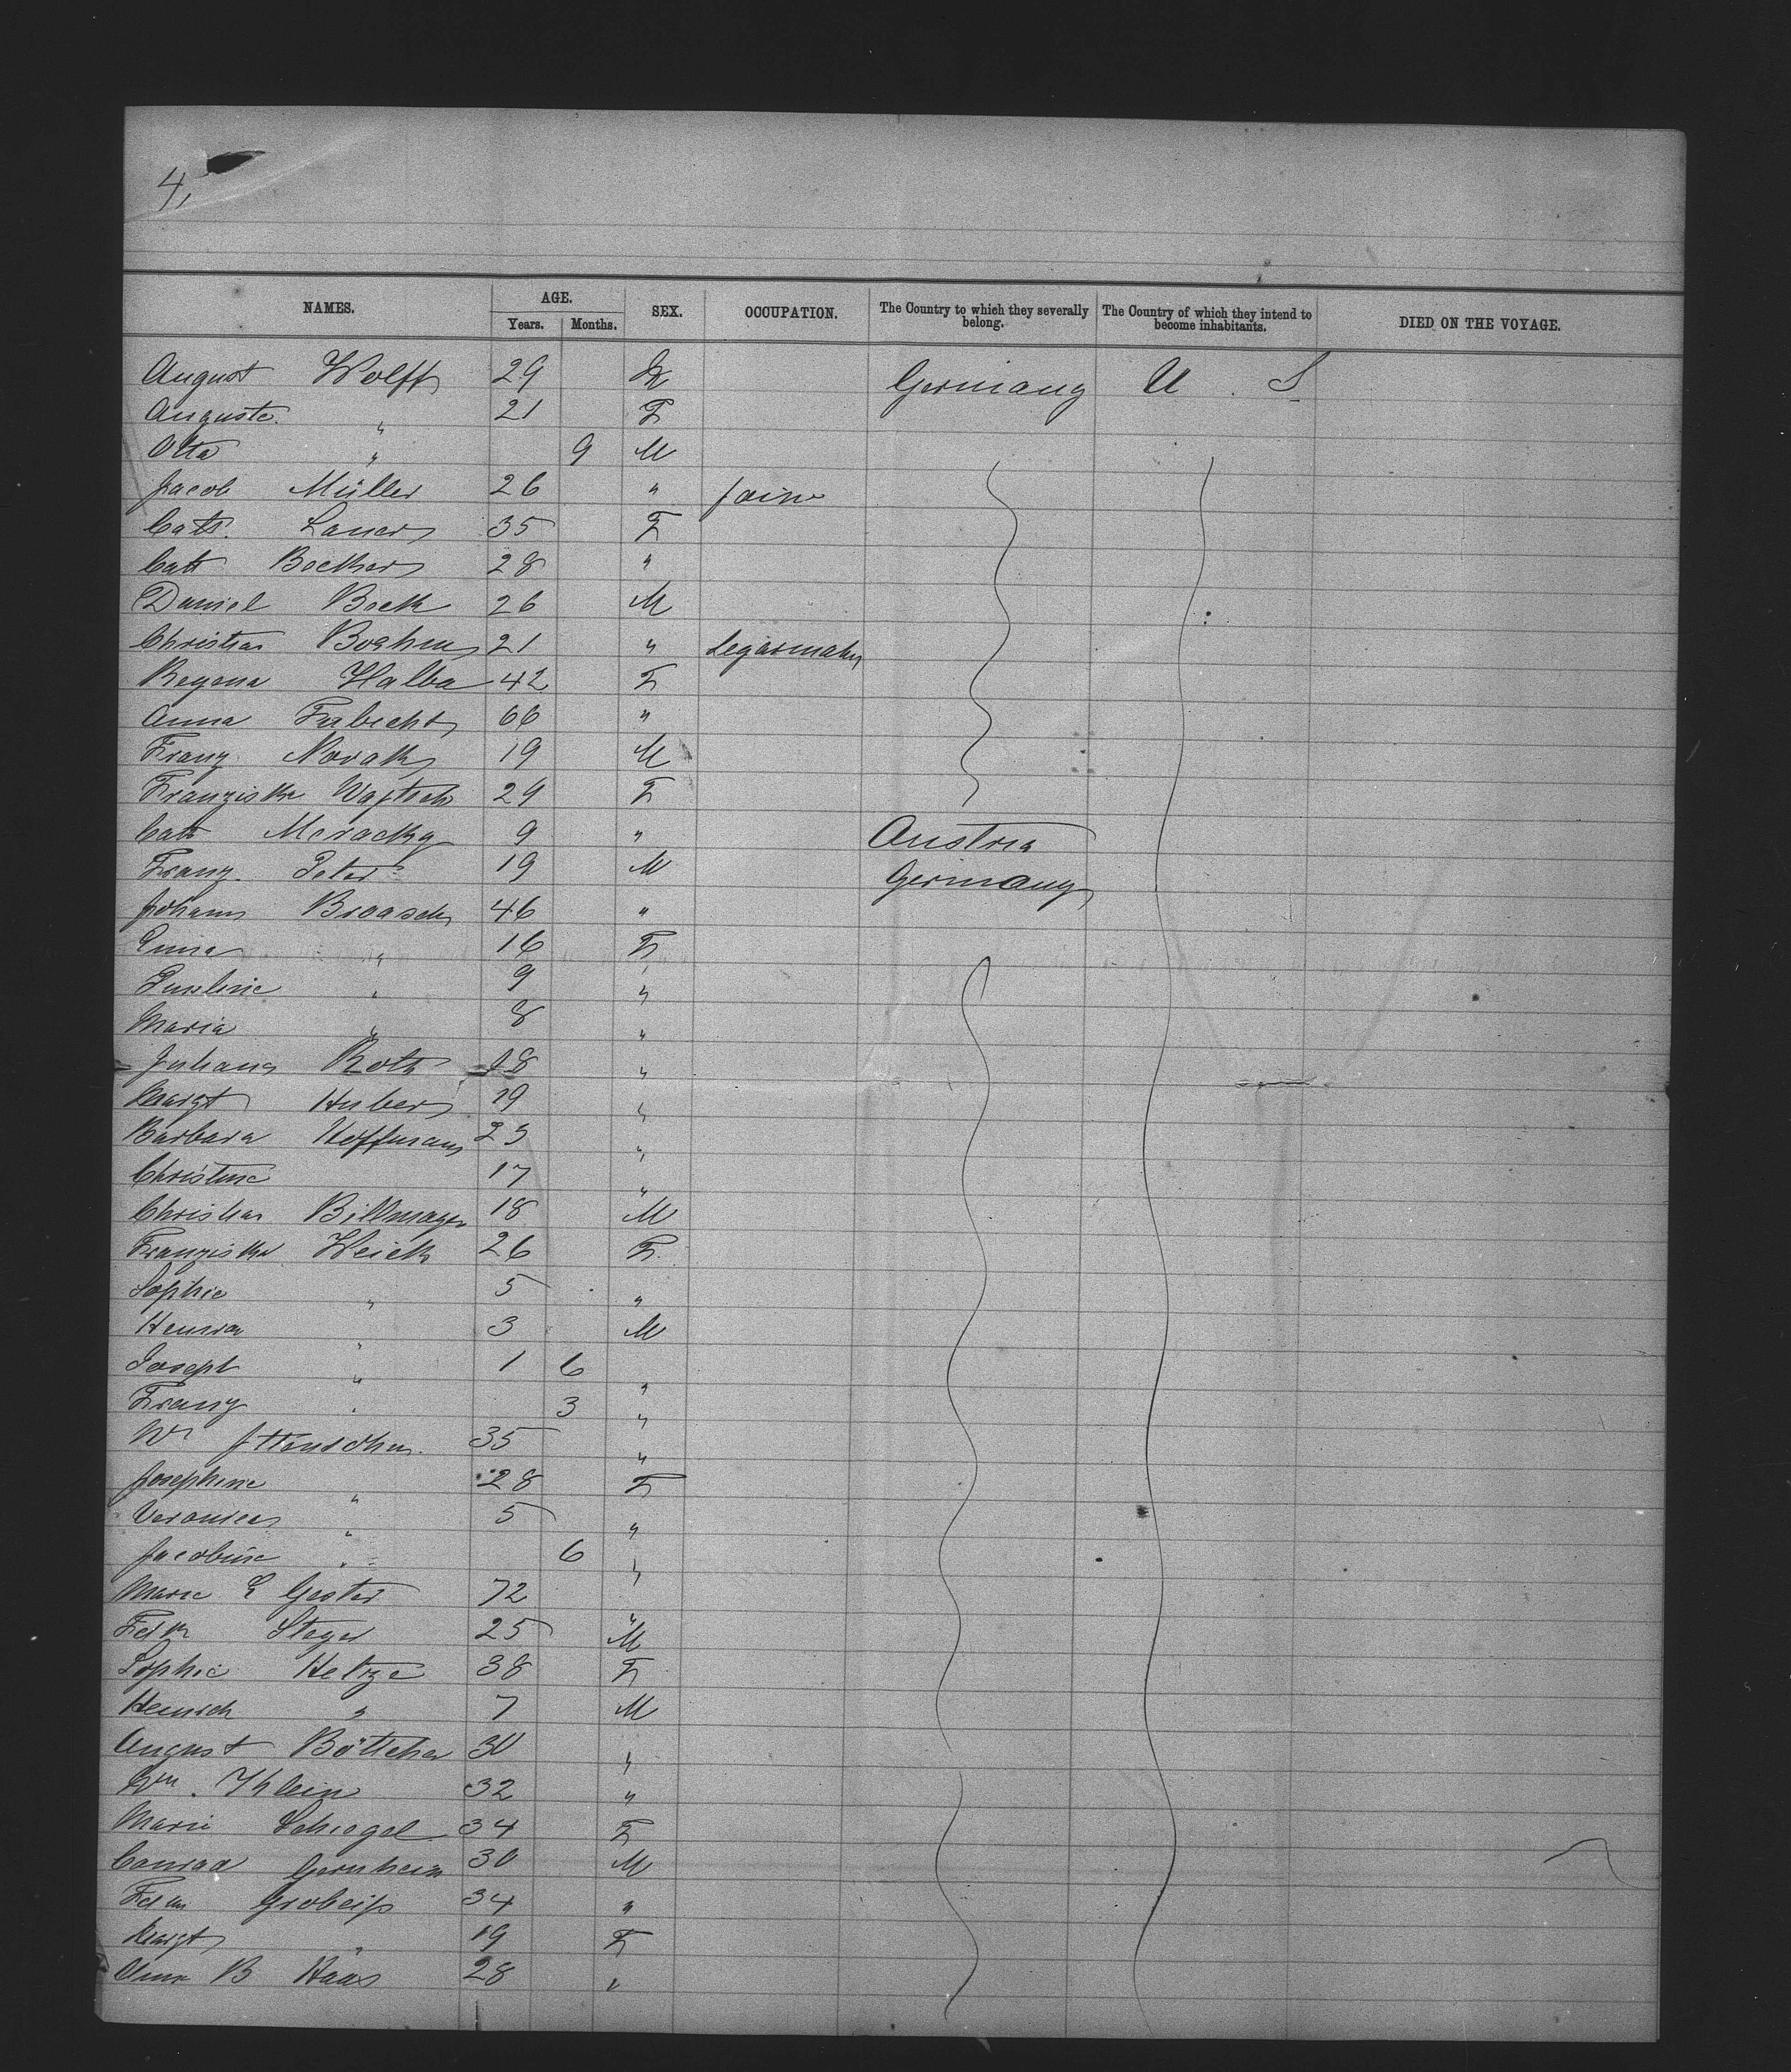 4,
NAMES. AGE. SEX. OCCUPATION. The Country to which they severally belong. The Country of which they intend to become inhabitants. DIED ON THE VOYAGE.
Years. Months.
August Wolff 29 M Germany U. S
Auguste " 21 F
Otto " 9 M
Jacob Müller 26 "
Cath. Lauer 35 F
Cath Becker 28 "
Daniel Beck 26 M
Christian Boehm 21 " Segarmaker
Regena Halba 42 F
Anna 66 "
Franz Novak 19 M
Franziska 29 F
Cath 9 " Austria
Franz Peter 19 M Germany
Johann Braasch 46 "
16 F
Pauline " 9 "
Maria " 8 "
Juliana Roth 18 "
Margt Huber 19 "
Barbara Hoffmann 23 "
Christine 17 "
Christian Billmayer 18 M
Franziska Weick 26 F
Sophie " 5 "
3 M
Joseph " 1 6 "
Franz " 3 "
Wm 35 "
Josephine " 28 F
Veronica " 5 "
Jacobine " 6 "
Marie E 72 "
Fdk Steger 25 M
Sophie Hetze 38 F
Heinrich " 7 M
August Böttcher 30 "
Wm. Klein 32 "
Marie 34 F
Conrad Gernheim 30 M
34 "
Margt " 19 F
Anna B Haas 28 "